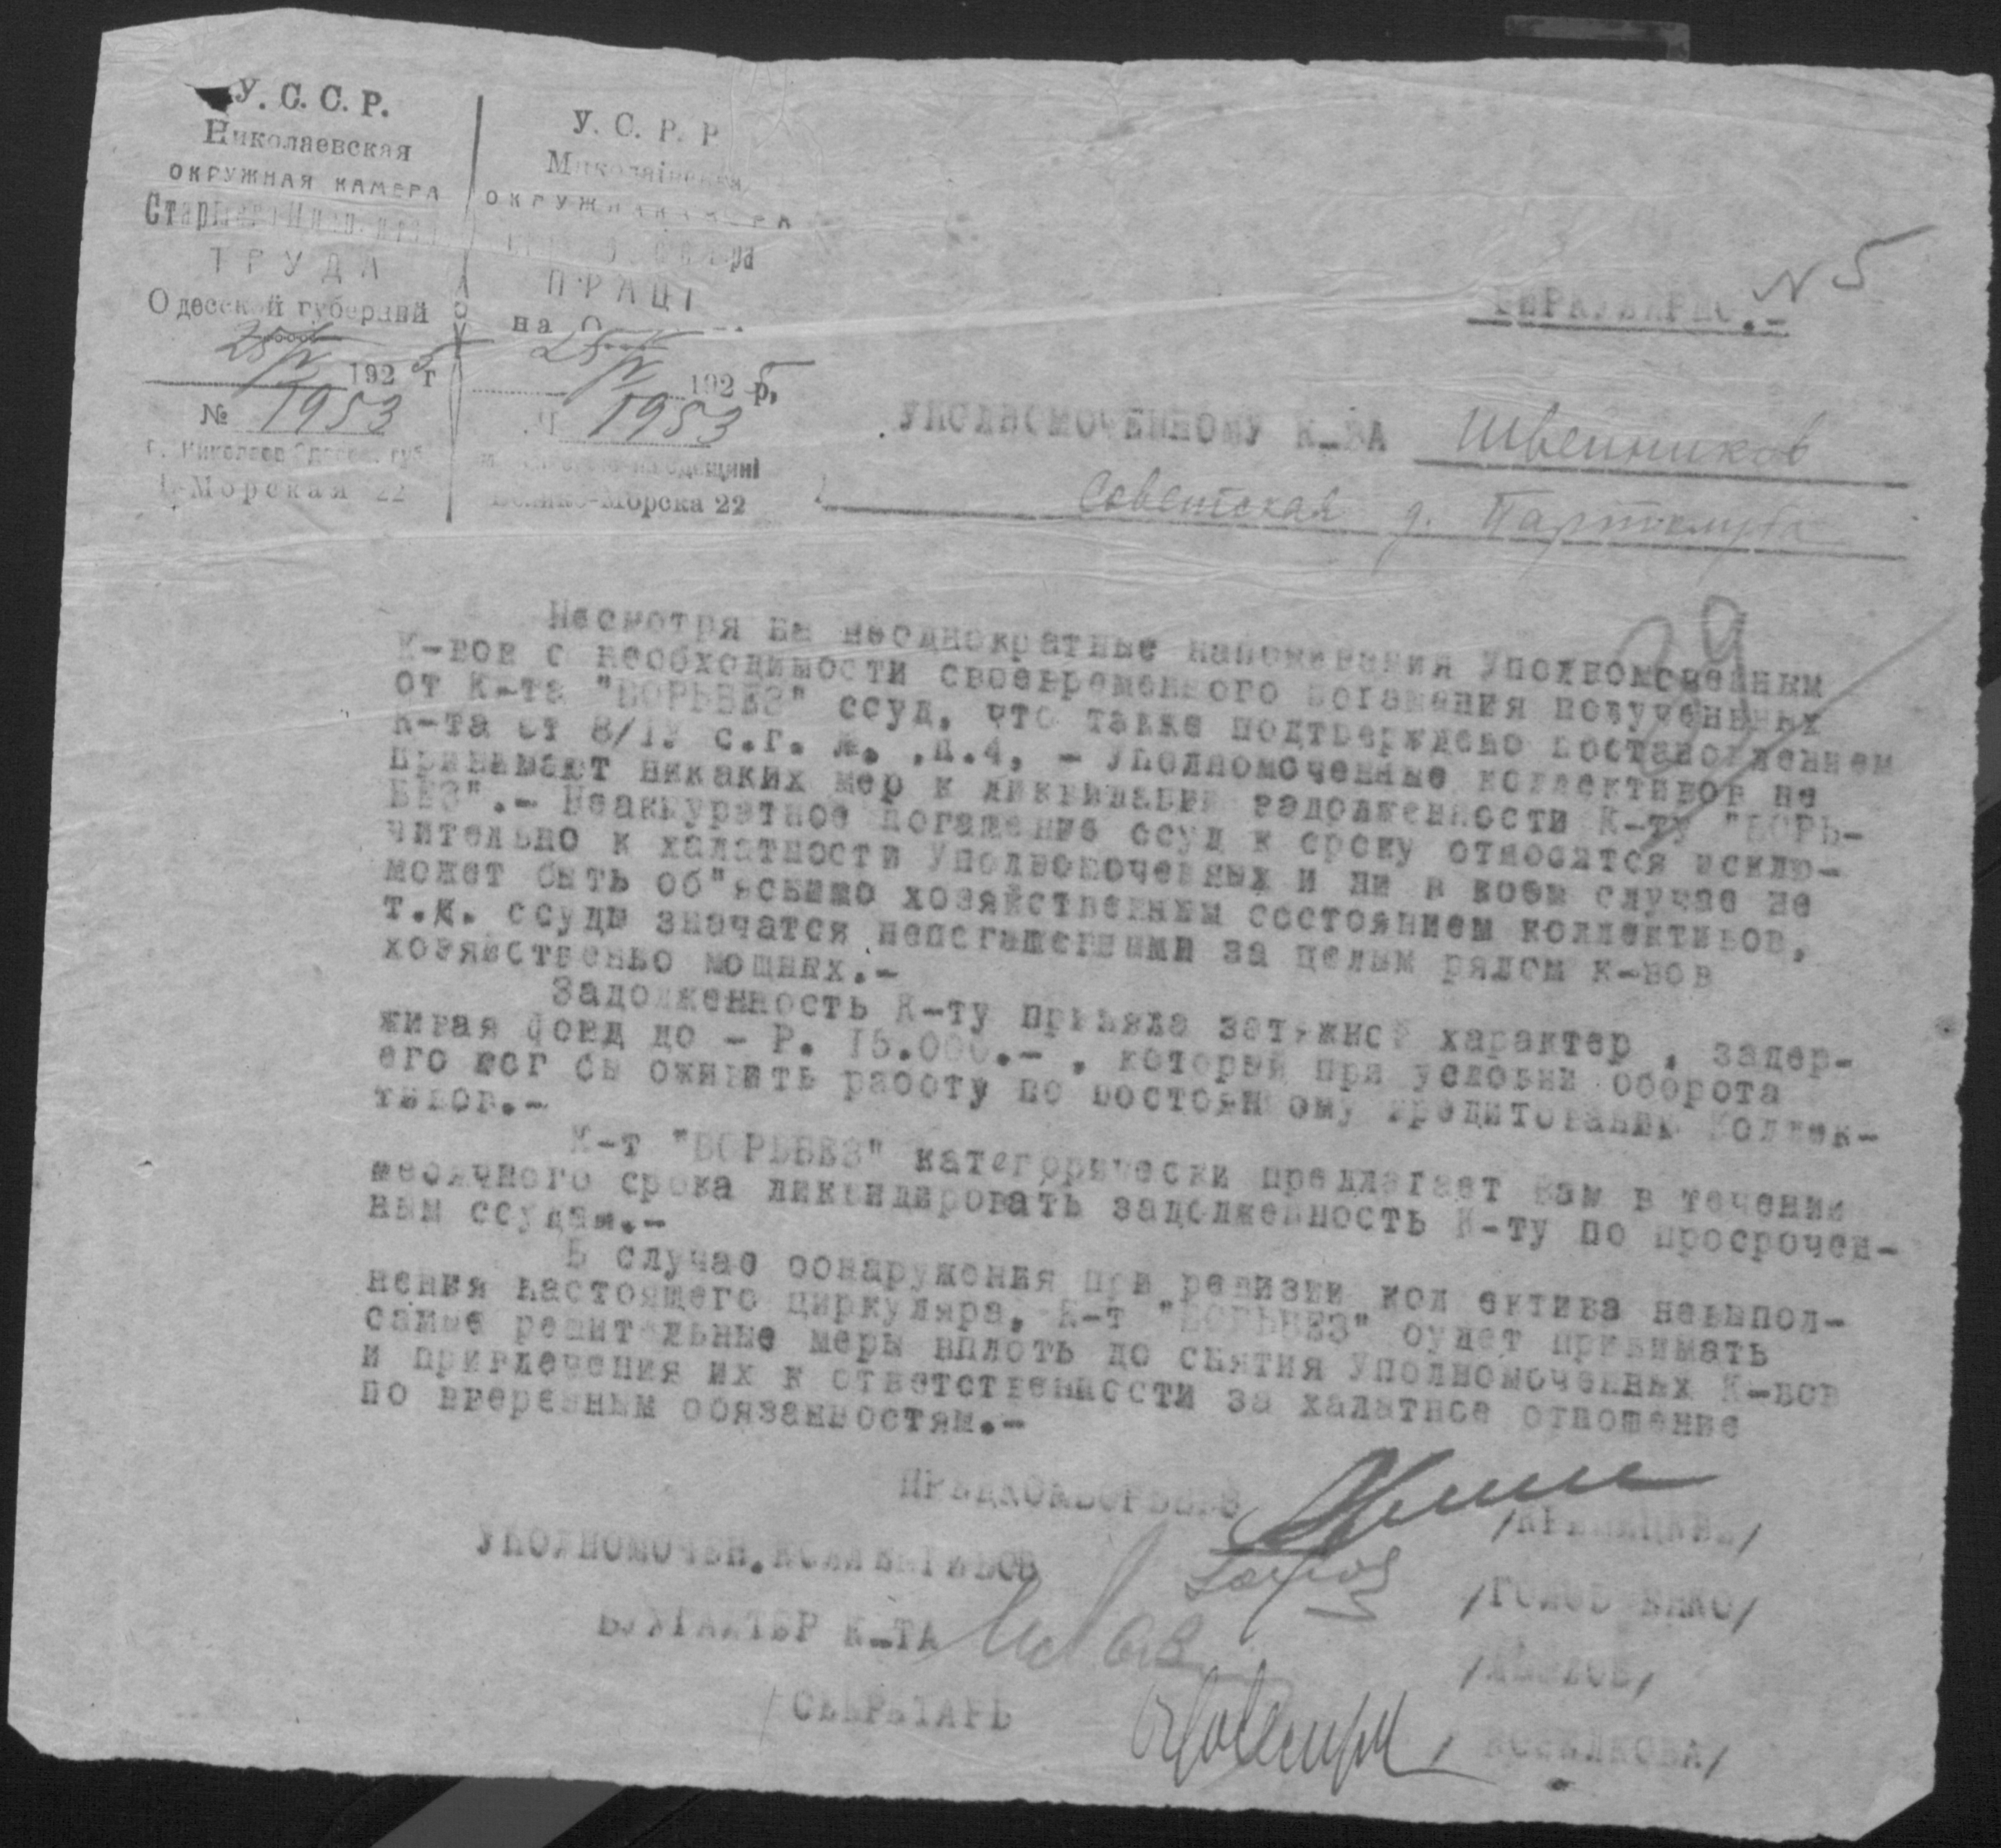 У. С. С. Р.
Николаевская
ОКРУЖНАЯ КАМЕРА
Старшего Инспектора
ТРУДА
Одесской губернии
25/IV 1925 г
№ 1953
г. Николаев Одесск. губ.
1-Морская 22
У. С. Р. Р
Миколаївська
ОКРУЖНА КАМЕРА
ПРАЦІ
на
25/IV 1925 р.
Ч 1953
Велико-Морска 22
ЦИРКУЛЯРНО.- N 5
УПОЛНОМОЧЕННОМУ К-ВА Швейников
Советская д. Партклуба
39
Несмотря на неоднократные напоминания Уполномоченным
К-вов о необходимости своевременного погашения полученных
от К-та "БОРЬБЕЗ" ссуд, что также подтверждено постановлением
К-та от 8/IV с.г. №. ,п.4, - Уполномоченные коллективов не
принимают никаких мер к ликвидации задолженности К-ту "БОРЬ-
БЕЗ".- Неаккуратное погашение ссуд к сроку относится исклю-
чительно к халатности Уполномоченных и ни в коем случае не
может быть об"яснимо хозяйственным состоянием коллективов,
т.к. ссуды значатся непогашенными за целым рядом к-вов
хозяйственно мощных.-
Задолженность К-ту приняла затяжной характер , задер-
живая фонд до - Р. 15.000.- , который при условии оборота
его мог бы оживить работу по постоянному кредитованию Коллек-
тивов.-
К-т "БОРЬБЕЗ" категорически предлагает Вам в течении
месячного срока ликвидировать задолженность К-ту по просрочен-
ным ссудам.-
В случае обнаружения при ревизии кол ектива невыпол-
нения настоящего циркуляра, К-т "БОРЬБЕЗ" будет принимать
самые решительные меры вплоть до снятия Уполномоченных К-вов
и привлечения их к ответственности за халатное отношение
по вверенным обязанностям.-
ПРЕДКОМБОРЬБЕЗ
УПОЛНОМОЧЕН.КОЛЛЕКТИВОВ /ГОЛОВ ЕНКО/
БУХГАЛТЕР К-ТА
/СЕКРЕТАРЬ